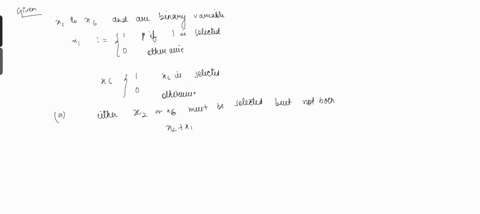 Given
x1 to x6 and are binary variable
x1 := { 1 if 1 is selected
0 otherwise
x6 { 1 x6 is selected
0 otherwise
(a) either x2 or x6 must be selected but not both
x2 + x1